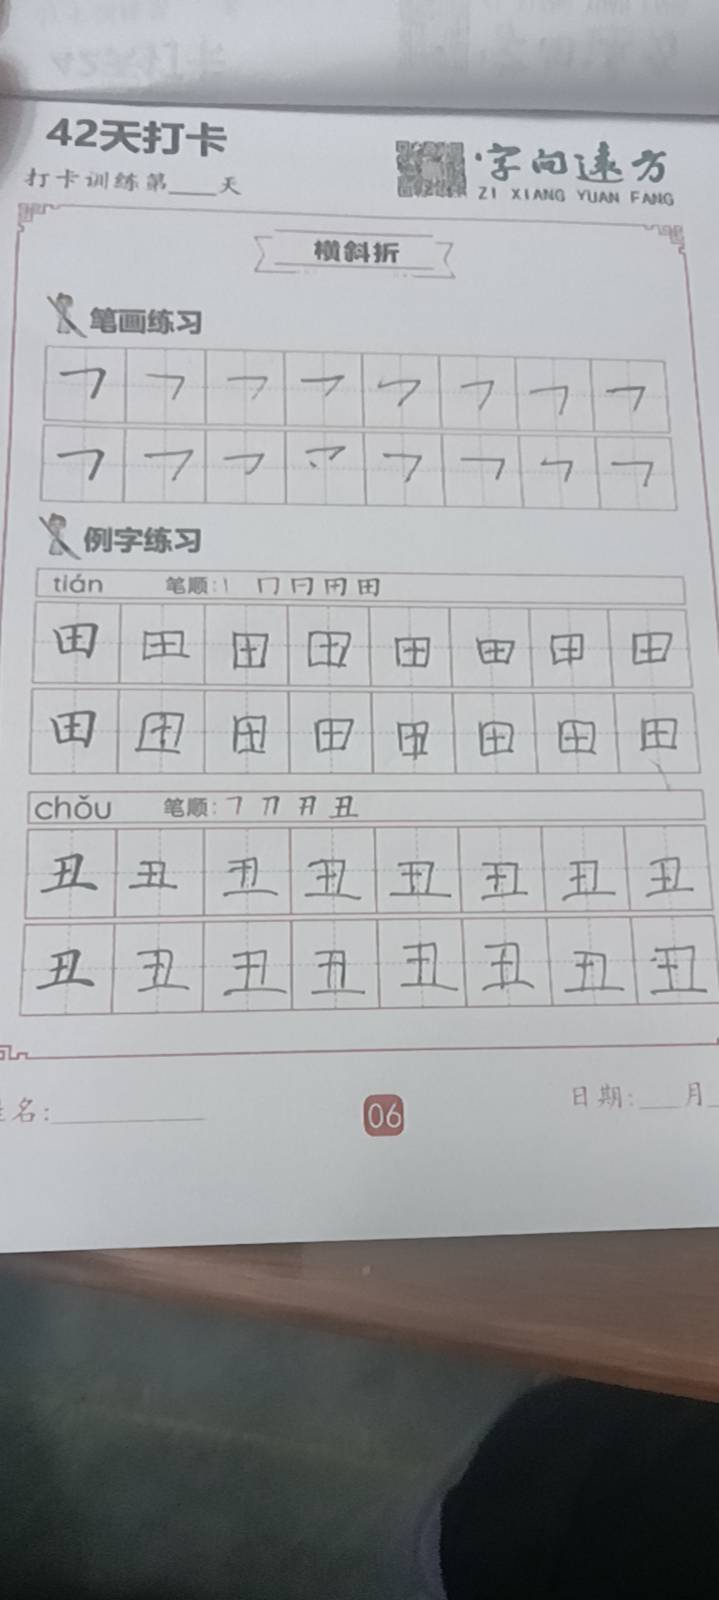 42天打卡
打卡训练第____天
字向远方
ZI XIANG YUAN FANG
横斜折
笔画练习
㇕ ㇕ ㇕ ㇕ ㇕ ㇕ ㇕ ㇕
㇕ ㇕ ㇕ ㇕ ㇕ ㇕ ㇕ ㇕
例字练习
tián 笔顺:丨 冂 冃 用 田
田 田 田 田 田 田 田 田
田 田 田 田 田 田 田 田
chǒu 笔顺:㇕ 刀 丑
丑 丑 丑 丑 丑 丑 丑 丑
丑 丑 丑 丑 丑 丑 丑 丑
名:
06
日期:___月